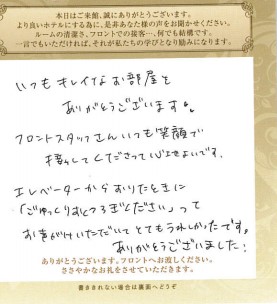 本日はご来館、誠にありがとうございます。
より良いホテルにする為に、是非あなた様の声をお聞かせください。
ルームの清潔さ、フロントでの接客…、何でも結構です。
一言でもいただければ、それが私たちの学びとなり励みになります。
いつもキレイなお部屋を
ありがとうございます。
フロントスタッフさんいつも笑顔で
接してくださって心よいです。
エレベーターからおりたときに
「ごゆっくりおくつろぎください」って
お声がけいただいてとてもうれしかったです。
ありがとうございました!
ありがとうございます。フロントへお渡しください。
ささやかなお礼をさせていただきます。
書ききれない場合は裏面へどうぞ